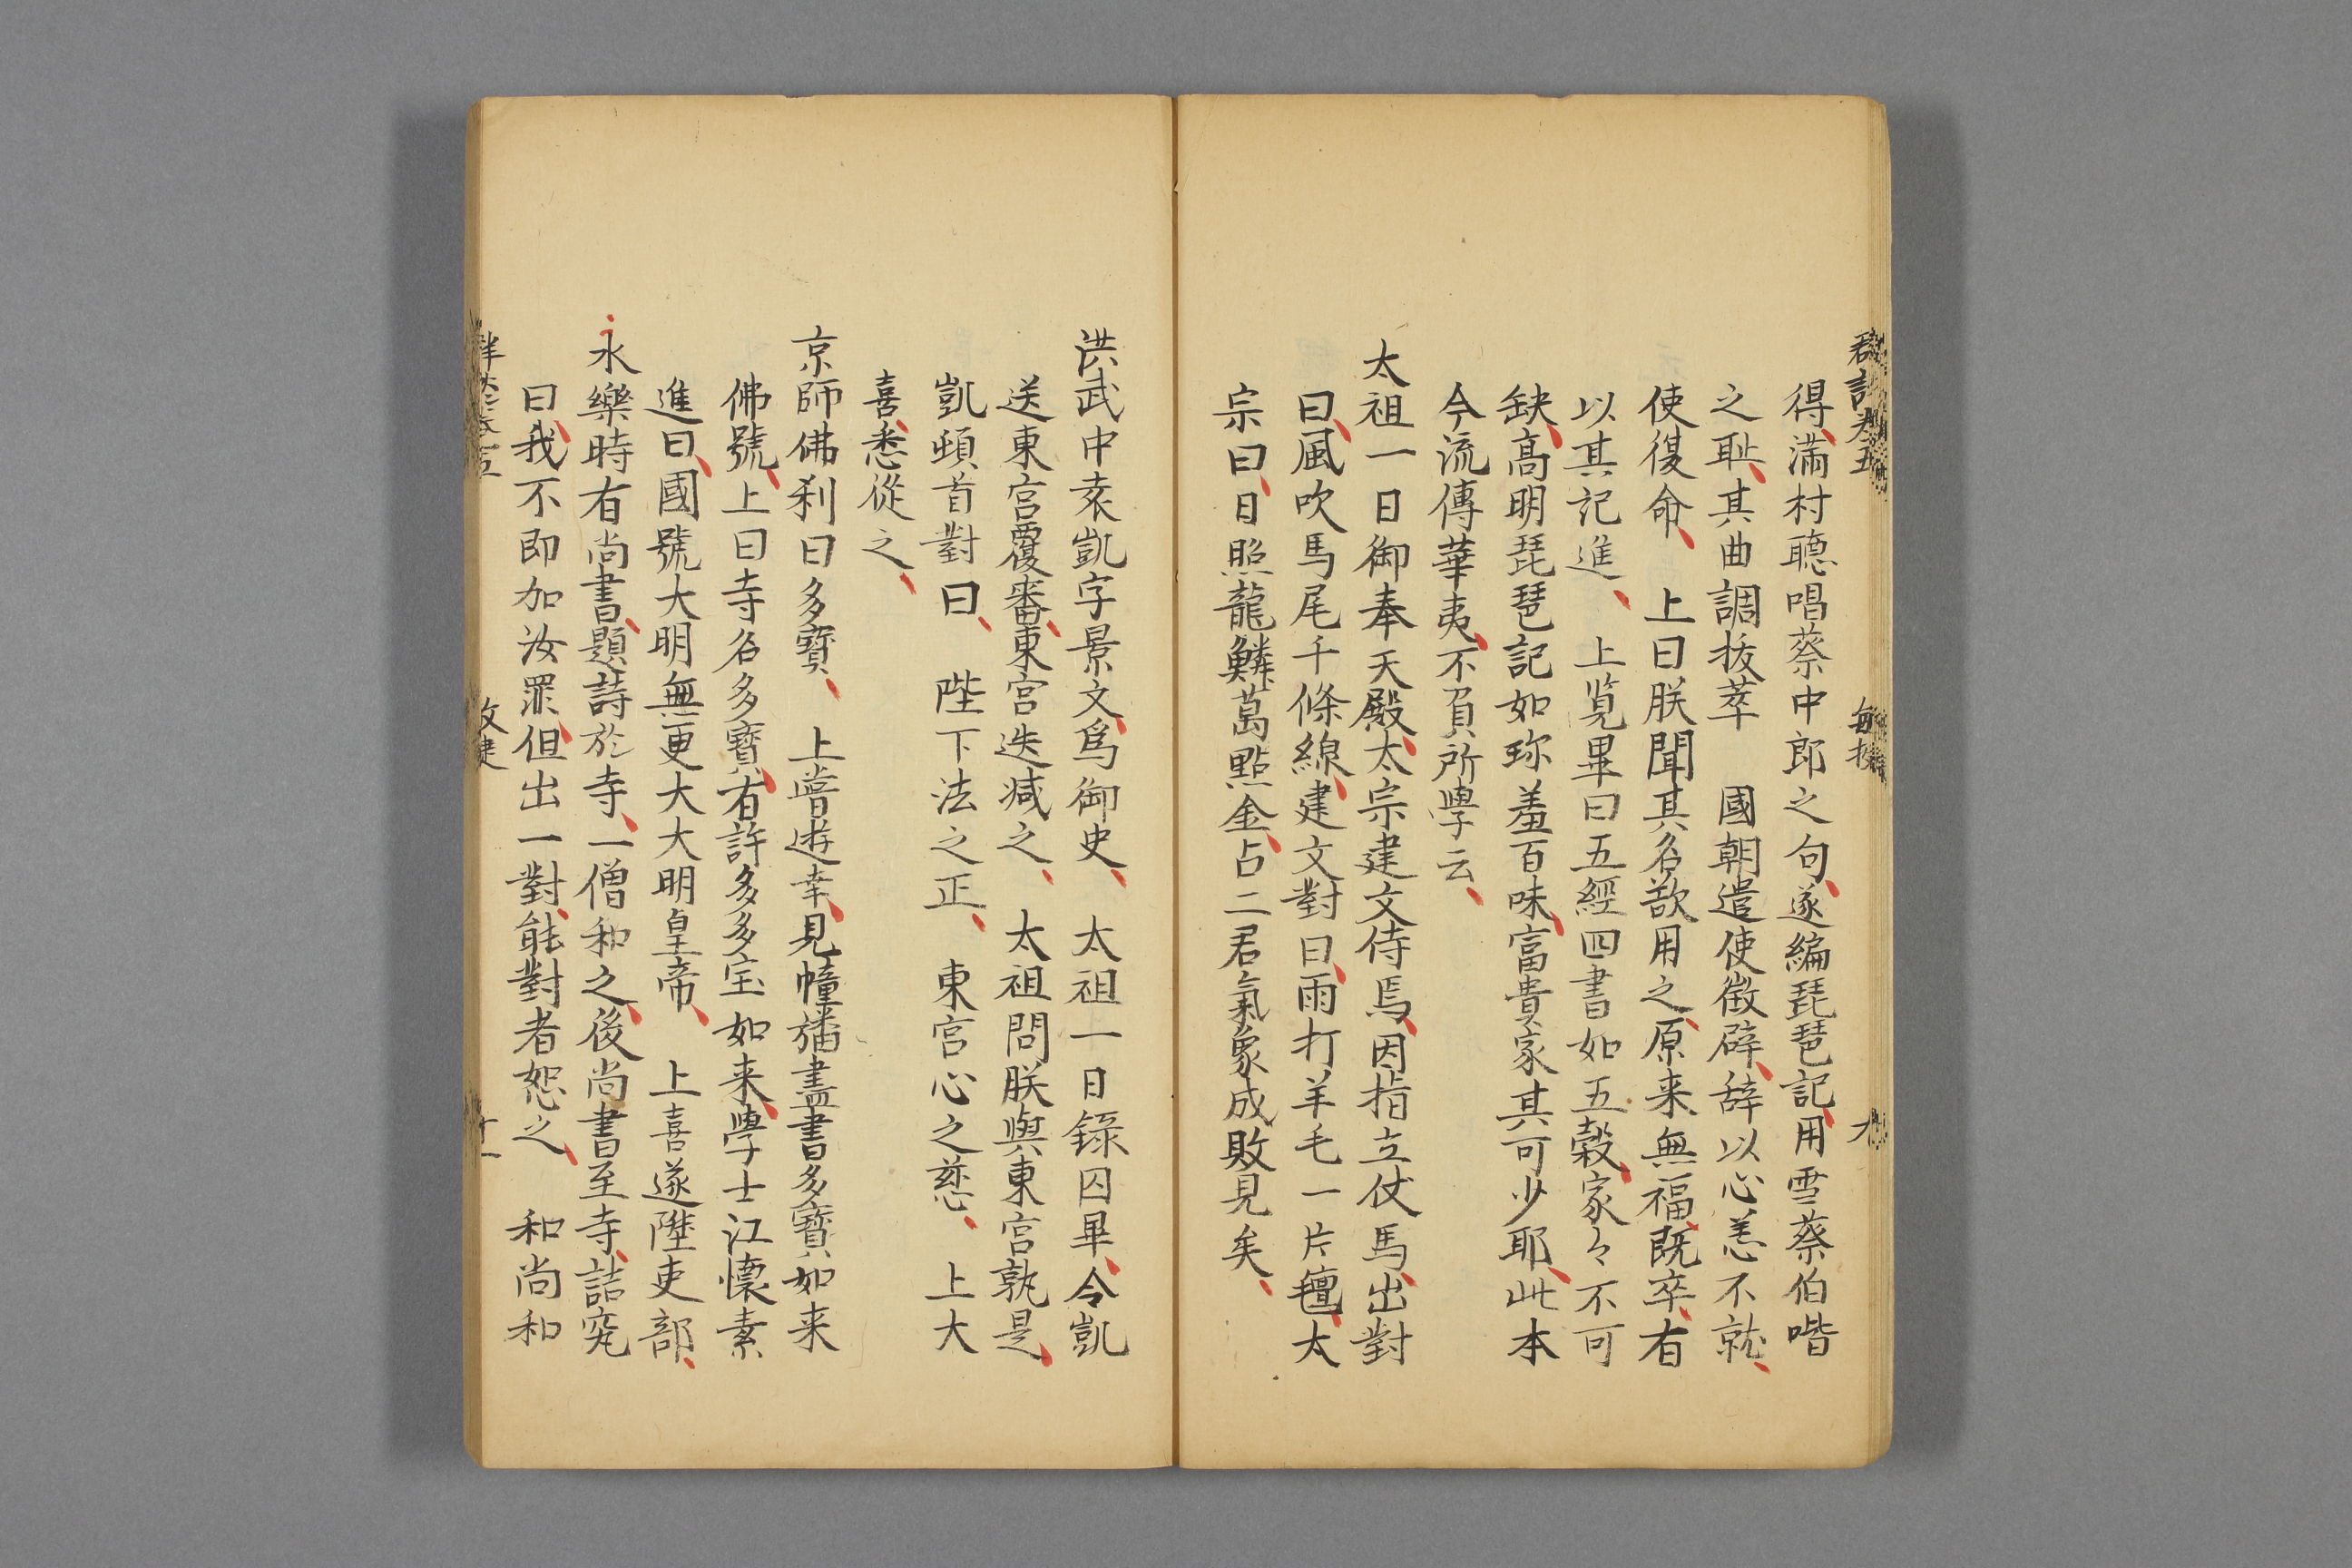 得、滿村聽唱蔡中郎之句、遂編琵琶記、用雪蔡伯喈
之耻、其曲調拔萃　國朝遣使徵辟、辞以心恙不就、
使復命、　上曰朕聞其名欲用之、原来無福、既卒、有
以其記進、　上覧畢曰五經四書如五穀、家々不可
缺、高明琵琶記如珎羞百味、富貴家其可少耶、此本
今流傳華夷、不負所學云、
太祖一日御奉天殿、太宗建文侍焉、因指立仗馬、出對
曰、風吹馬尾千條線、建文對曰、雨打羊毛一片氊、太
宗曰、日照龍鱗萬點金、占二君氣象成敗見矣、
洪武中袁凱字景文、爲御史、　太祖一日錄囚畢、令凱
送東宮覆審、東宮迭减之、　太祖問朕與東宮孰是、
凱頓首對曰、　陛下法之正、　東宮心之慈、　上大
喜、悉從之、
京師佛刹曰多寳、　上嘗遊幸、見幢旛盡書多寳如来
佛號、上曰寺名多寳、有許多多宝如来、學士江懷素
進曰、國號大明無更大大明皇帝、　上喜遂陞吏部、
永樂時有尚書、題詩於寺、一僧和之、後尚書至寺、詰究
曰、我不即加汝罪、但出一對、能對者恕之、　和尚和